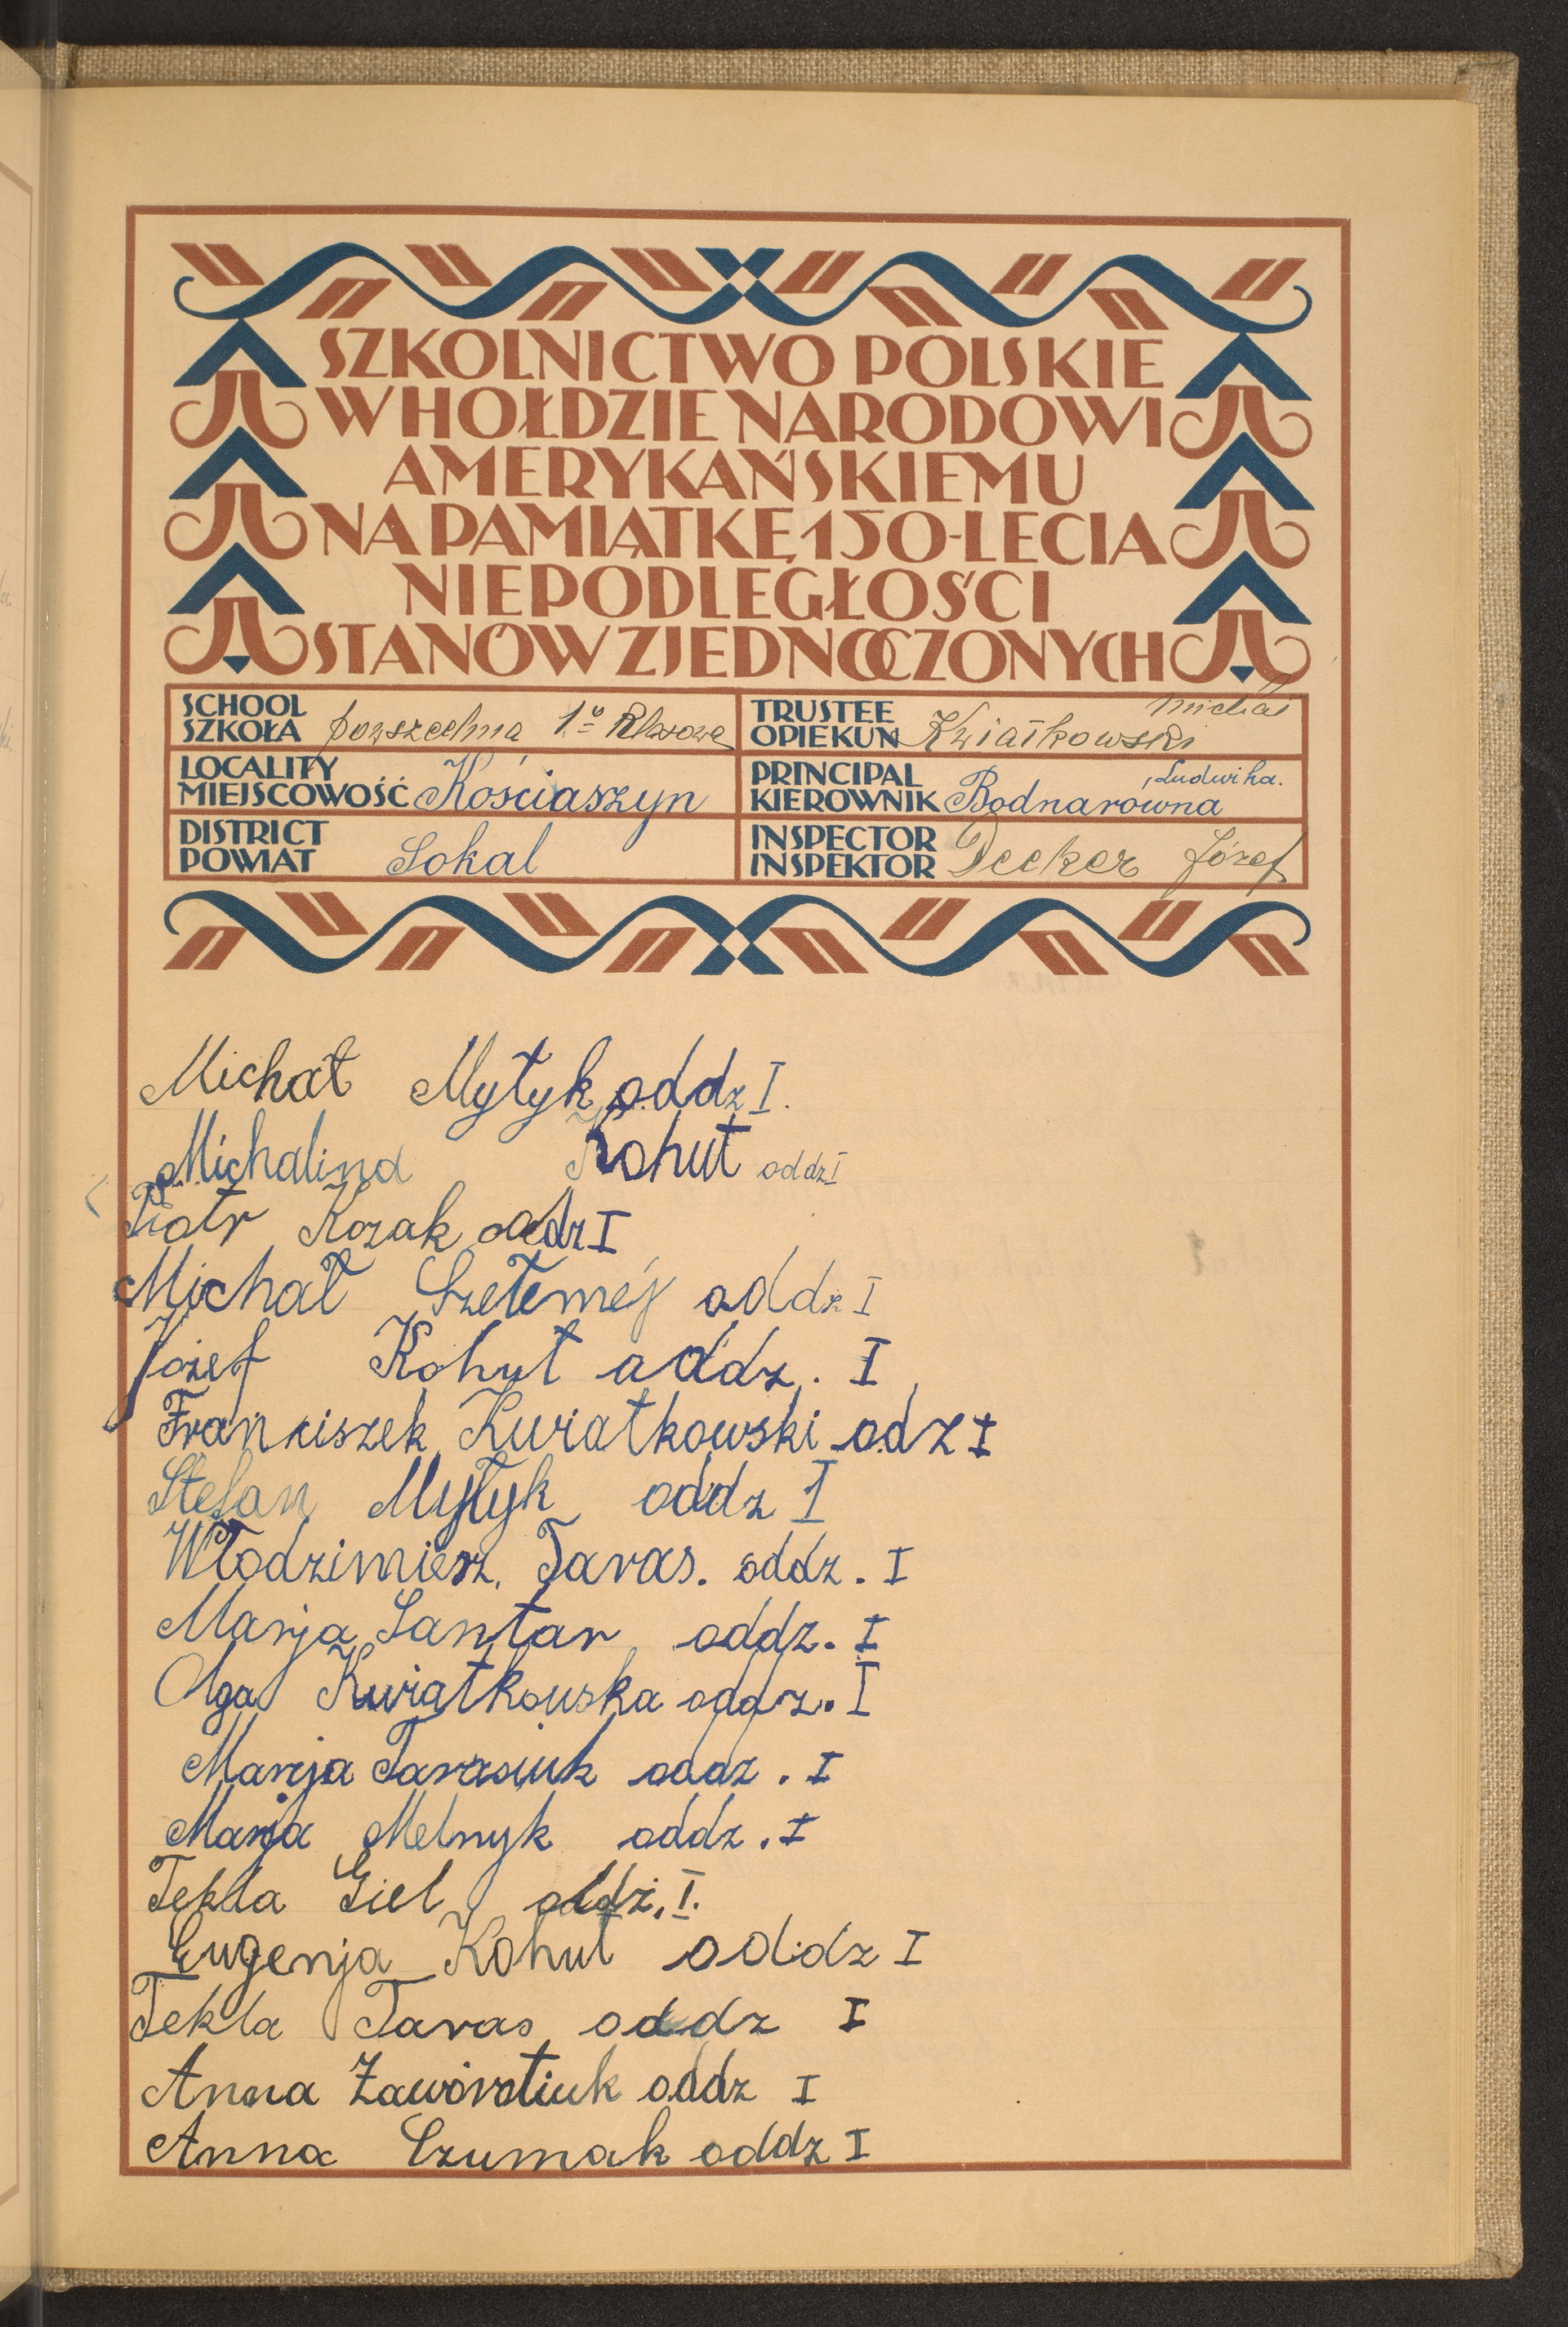 SZKOLNICTWO POLSKIE
W HOŁDZIE NARODOWI
AMERYKAŃSKIEMU
NA PAMIĄTKĘ 150-LECIA
NIEPODLEGŁOŚCI
STANÓW ZJEDNOCZONYCH
SCHOOL
SZKOŁA powszechna 1º klasowa
TRUSTEE
OPIEKUN Kwiatkowski Michał
LOCALITY
MIEJSCOWOŚĆ Kościaszyn
PRINCIPAL
KIEROWNIK Bodnarówna, Ludwika.
DISTRICT
POWIAT Sokal
INSPECTOR
INSPEKTOR Decker Józef
Michał Mytyk oddz I.
Michalina Kohut oddz I
Piotr Kozak oddz I
Michał Szetemej oddz I
Józef Kohut oddz. I
Franciszek Kwiatkowski odz I
Stefan Mytyk oddz I
Włodzimierz. Taras. oddz. I
Marja Santar oddz. I
Olga Kwiatkowska oddz. I
Marja Tarasiuk oddz. I
Marja Melnyk oddz. I
Tekla Giel oddz. I.
Eugenja Kohut oddz I
Tekla Taras oddz I
Anna Zaworotiuk oddz I
Anna Czumak oddz I